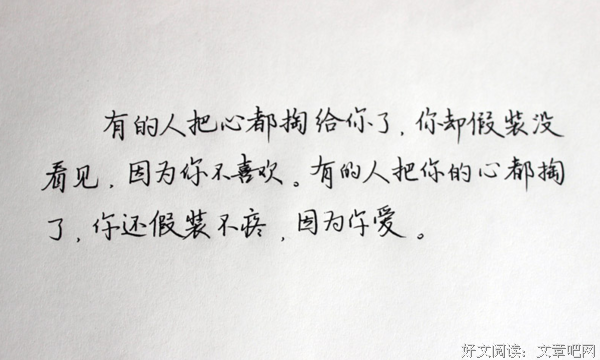 有的人把心都掏给你了，你却假装没
看见，因为你不喜欢。有的人把你的心都掏
了，你还假装不疼，因为你爱。
好文阅读：文章吧网